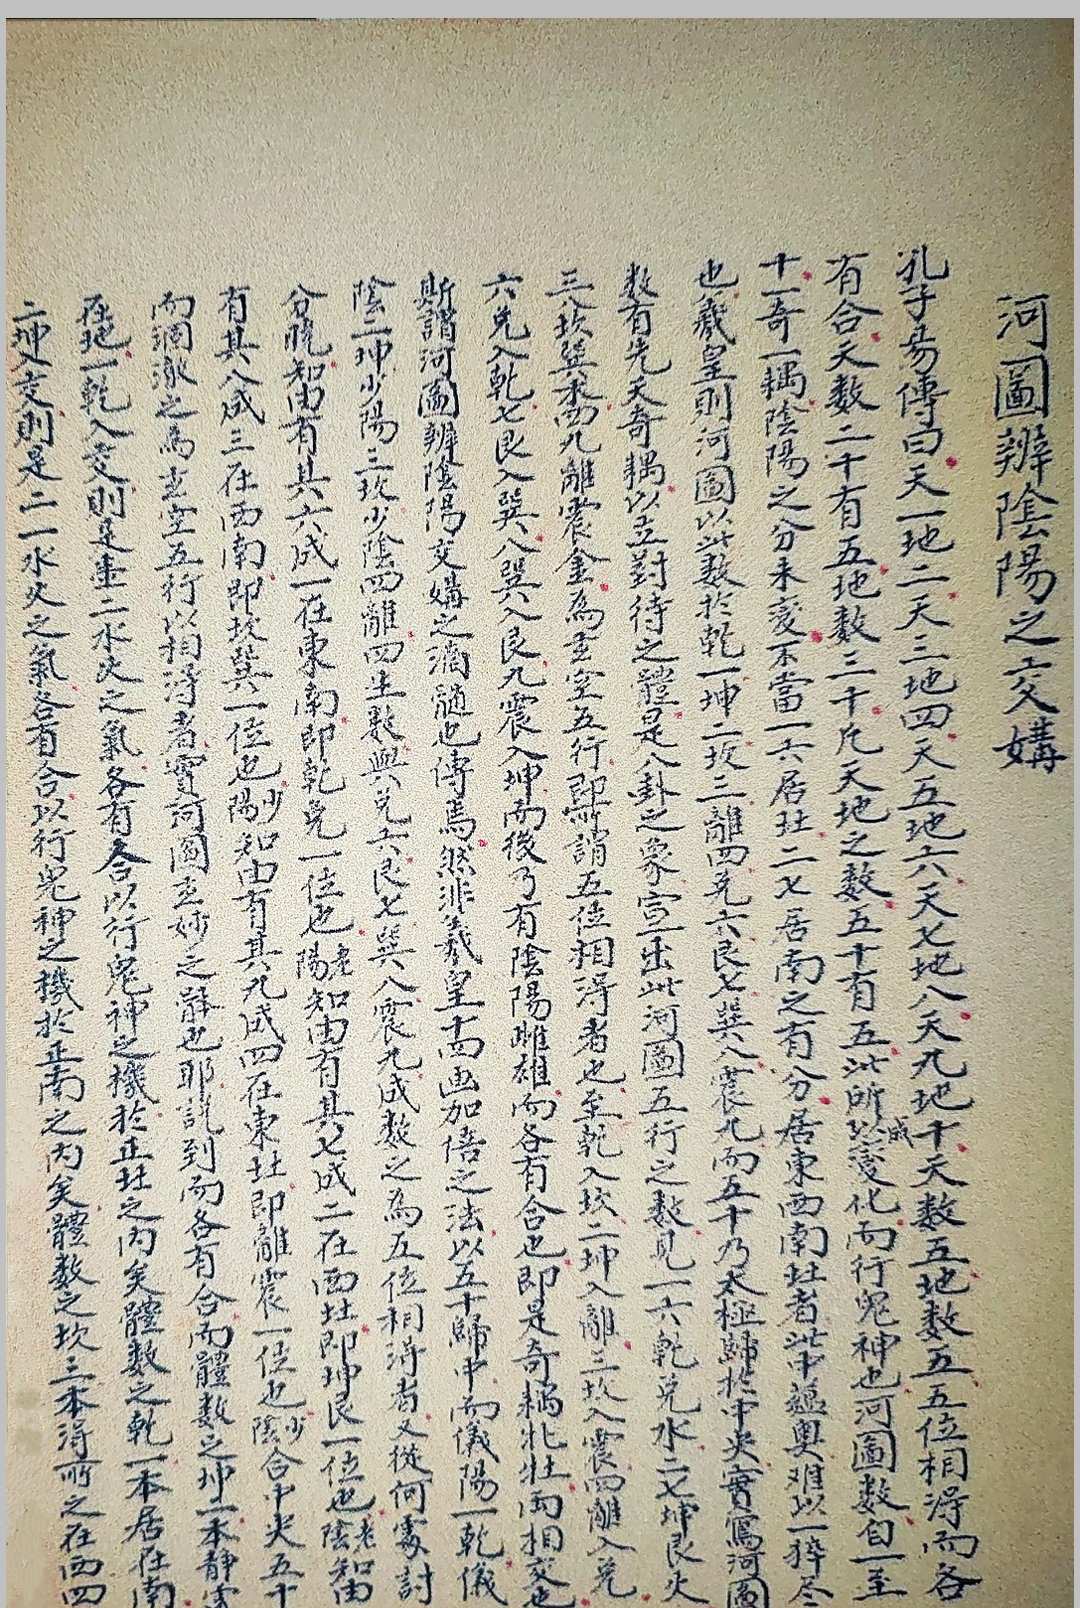 河圖辨陰陽之交媾
孔子易傳曰天一地二天三地四天五地六天七地八天九地十天数五地数五五位相得而各
有合天数二十有五地数三十凡天地之数五十有五此所以成變化而行鬼神也河圖数自一至
十一奇一耦陰陽之分未變不當一六居北二七居南之有分居東西南北者此中蘊奧难以一猝尽
也羲皇則河圖以此数於乾一坤二坎三離四兌六艮七巽八震九而五十乃太極歸於中央實寫河圖
数有先天奇耦以立對待之體是八卦之象宣出此河圖五行之数見一六乾兌水二七坤艮火
三八坎巽木四九離震金為玄空五行即所謂五位相得者也至乾入坎二坤入離三坎入震四離入兌
六兌入乾七艮入巽八巽入艮九震入坤而後乃有陰陽雌雄而各有合也即是奇耦牝牡两相交也
斯謂河圖辨陰陽交媾之滴髓也傳焉然非羲皇十四画加倍之法以五十歸中而儀陽一乾儀
陰二坤少陽三坎少陰四離四生数與兌六艮七巽八震九成数之為五位相得者又從何處討
分曉知由有其六成一在東南即乾兌一位也老陽知由有其七成二在西北即坤艮一位也老陰知由
有其八成三在西南即坎巽一位也少陽知由有其九成四在東北即離震一位也少陰合中央五十
而洞澈之為玄空五行以相得者實河圖玄妙之解也耶説到而各有合而體数之坤二本静
在北一乾入交則是壹二水火之氣各有合以行鬼神之機於正北之内矣體数之乾一本居在南
二坤入交則是二一水火之氣各有合以行鬼神之機於正南之内矣體数之坎三本得所之在西四